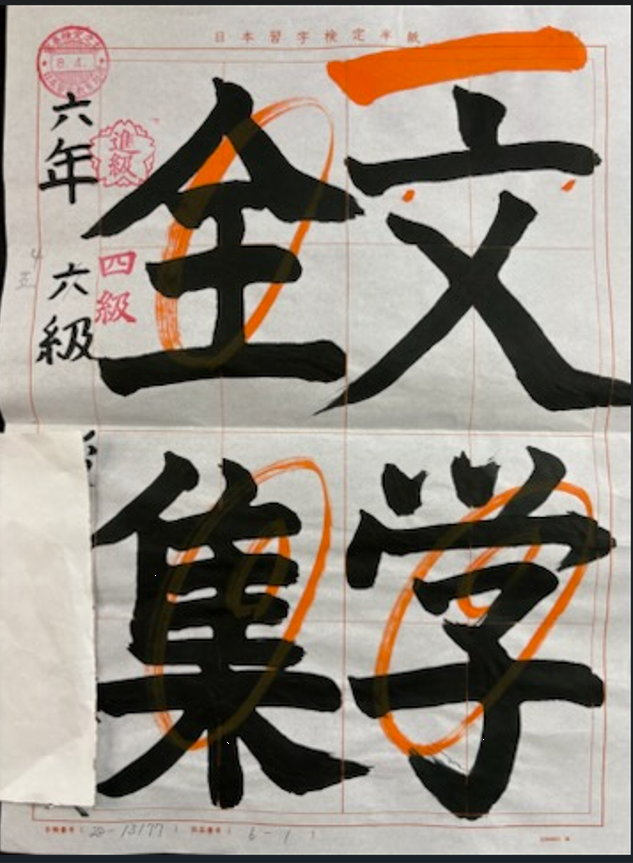 日本習字検定半紙
文学
全集
進級
四級
8.4.
六年 六級
28-13177
6-1